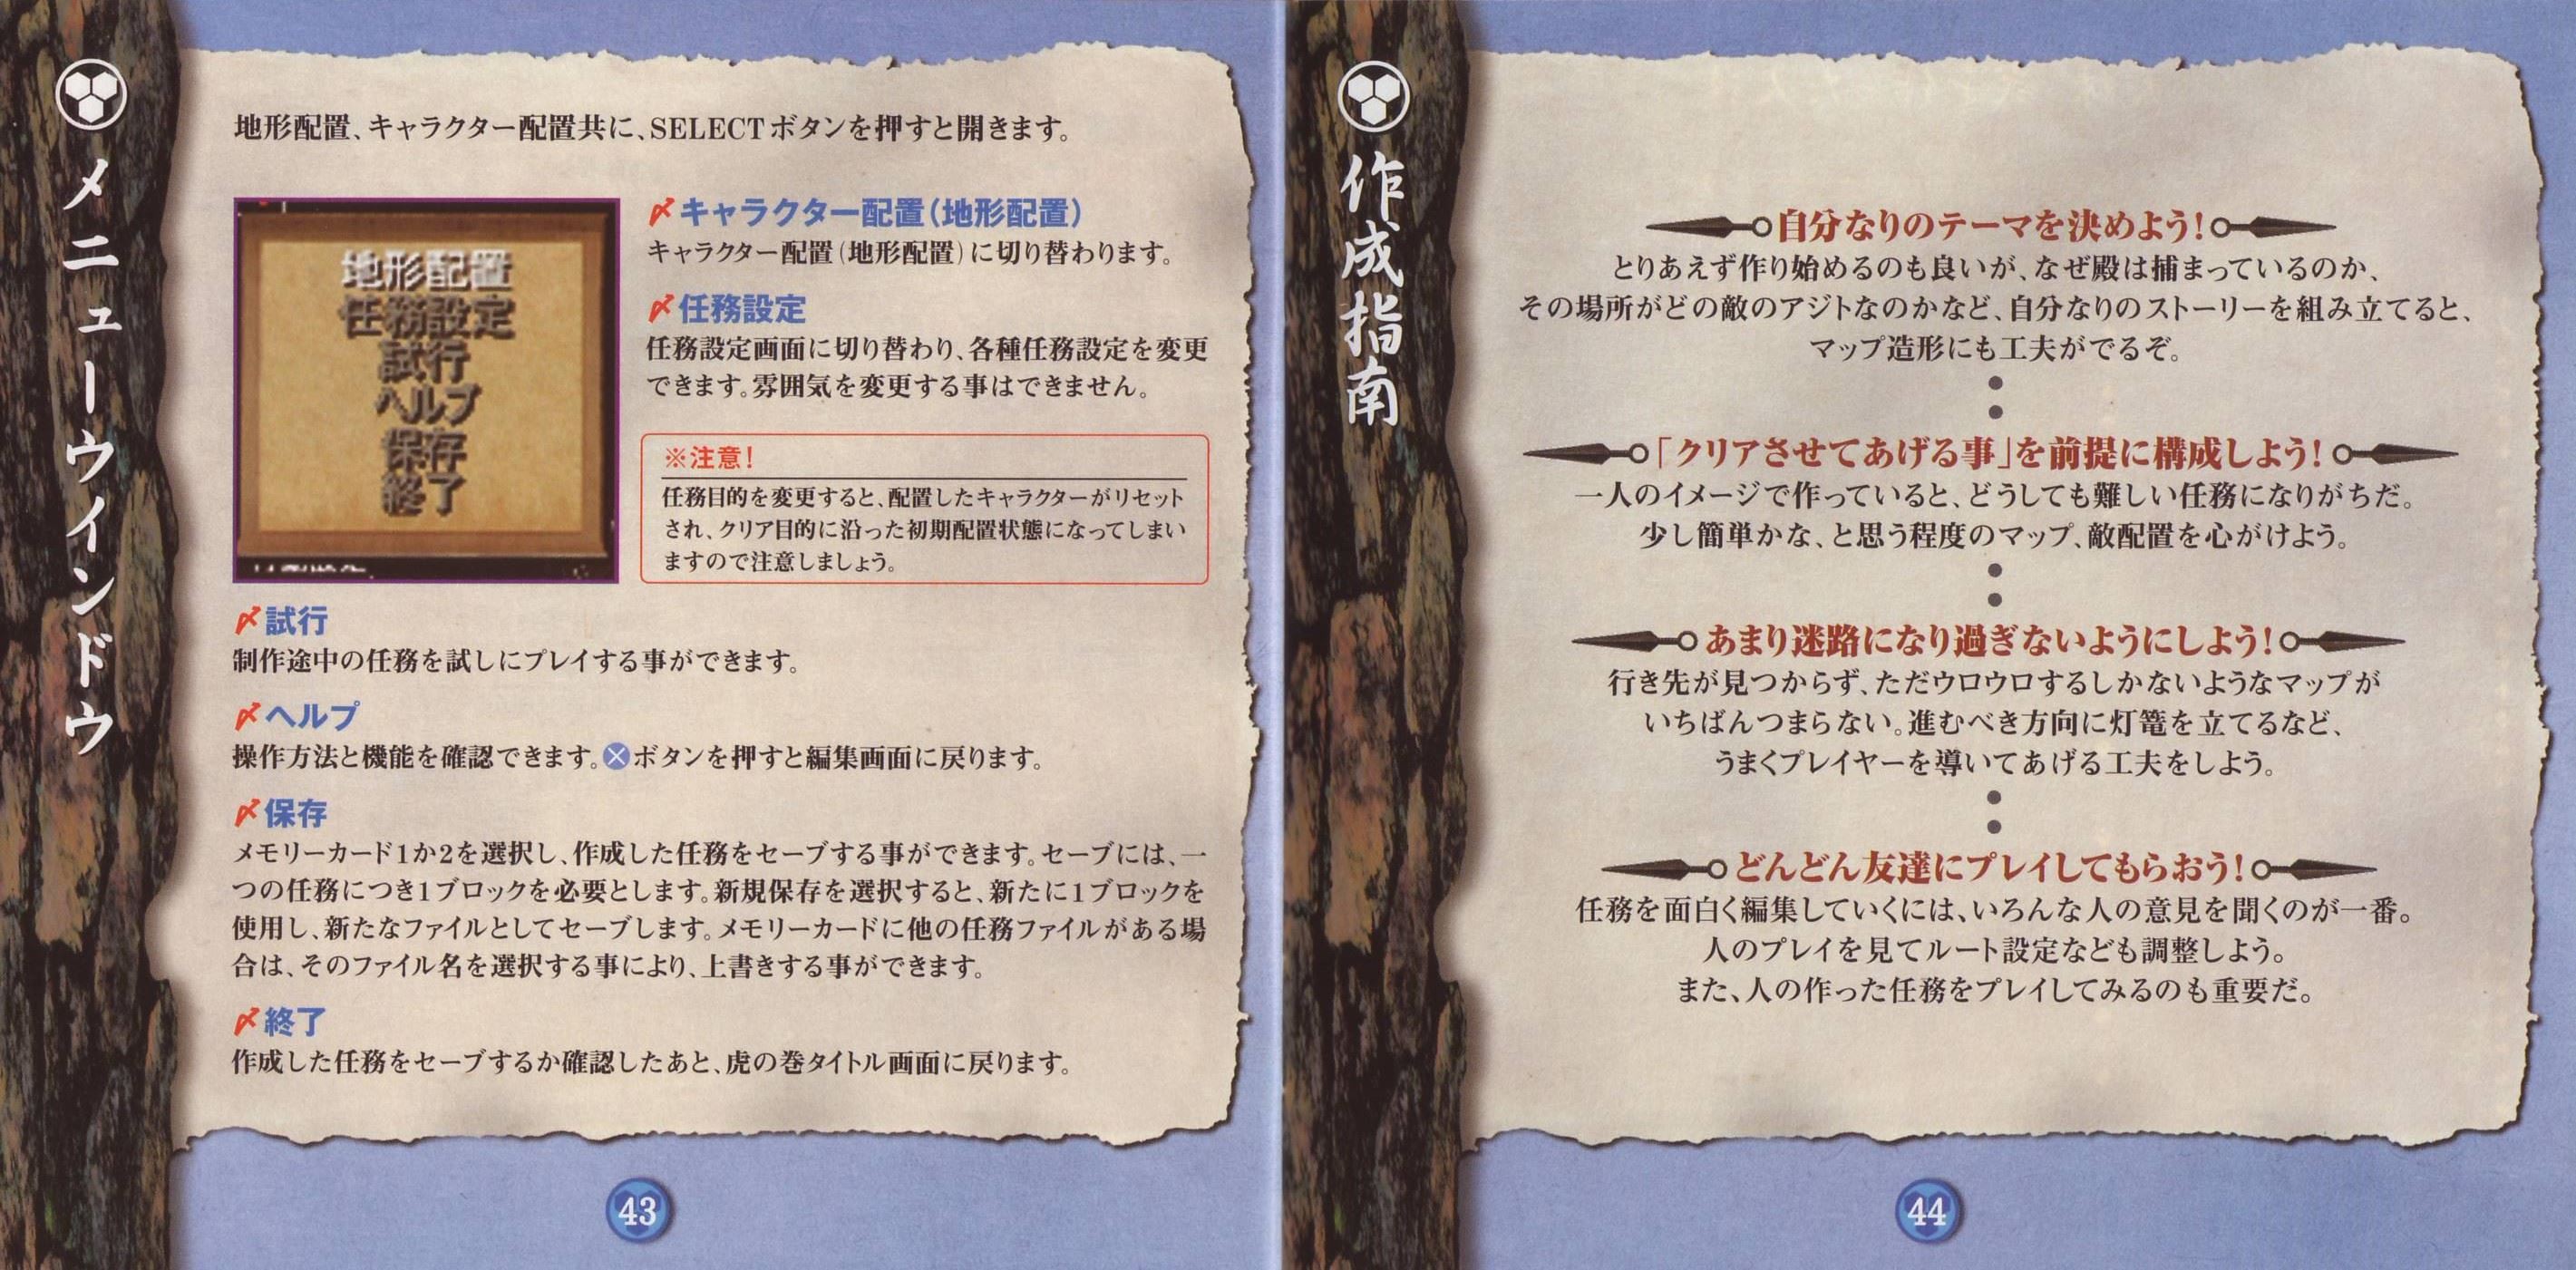 メニューウインドウ
地形配置、キャラクター配置共に、SELECTボタンを押すと開きます。
地形配置
任務設定
試行
ヘルプ
保存
終了
〆キャラクター配置(地形配置)
キャラクター配置(地形配置)に切り替わります。
〆任務設定
任務設定画面に切り替わり、各種任務設定を変更
できます。雰囲気を変更する事はできません。
※注意!
任務目的を変更すると、配置したキャラクターがリセット
され、クリア目的に沿った初期配置状態になってしまい
ますので注意しましょう。
〆試行
制作途中の任務を試しにプレイする事ができます。
〆ヘルプ
操作方法と機能を確認できます。×ボタンを押すと編集画面に戻ります。
〆保存
メモリーカード1か2を選択し、作成した任務をセーブする事ができます。セーブには、一
つの任務につき1ブロックを必要とします。新規保存を選択すると、新たに1ブロックを
使用し、新たなファイルとしてセーブします。メモリーカードに他の任務ファイルがある場
合は、そのファイル名を選択する事により、上書きする事ができます。
〆終了
作成した任務をセーブするか確認したあと、虎の巻タイトル画面に戻ります。
43
作成指南
自分なりのテーマを決めよう!
とりあえず作り始めるのも良いが、なぜ殿は捕まっているのか、
その場所がどの敵のアジトなのかなど、自分なりのストーリーを組み立てると、
マップ造形にも工夫がでるぞ。
「クリアさせてあげる事」を前提に構成しよう!
一人のイメージで作っていると、どうしても難しい任務になりがちだ。
少し簡単かな、と思う程度のマップ、敵配置を心がけよう。
あまり迷路になり過ぎないようにしよう!
行き先が見つからず、ただウロウロするしかないようなマップが
いちばんつまらない。進むべき方向に灯篭を立てるなど、
うまくプレイヤーを導いてあげる工夫をしよう。
どんどん友達にプレイしてもらおう!
任務を面白く編集していくには、いろんな人の意見を聞くのが一番。
人のプレイを見てルート設定なども調整しよう。
また、人の作った任務をプレイしてみるのも重要だ。
44